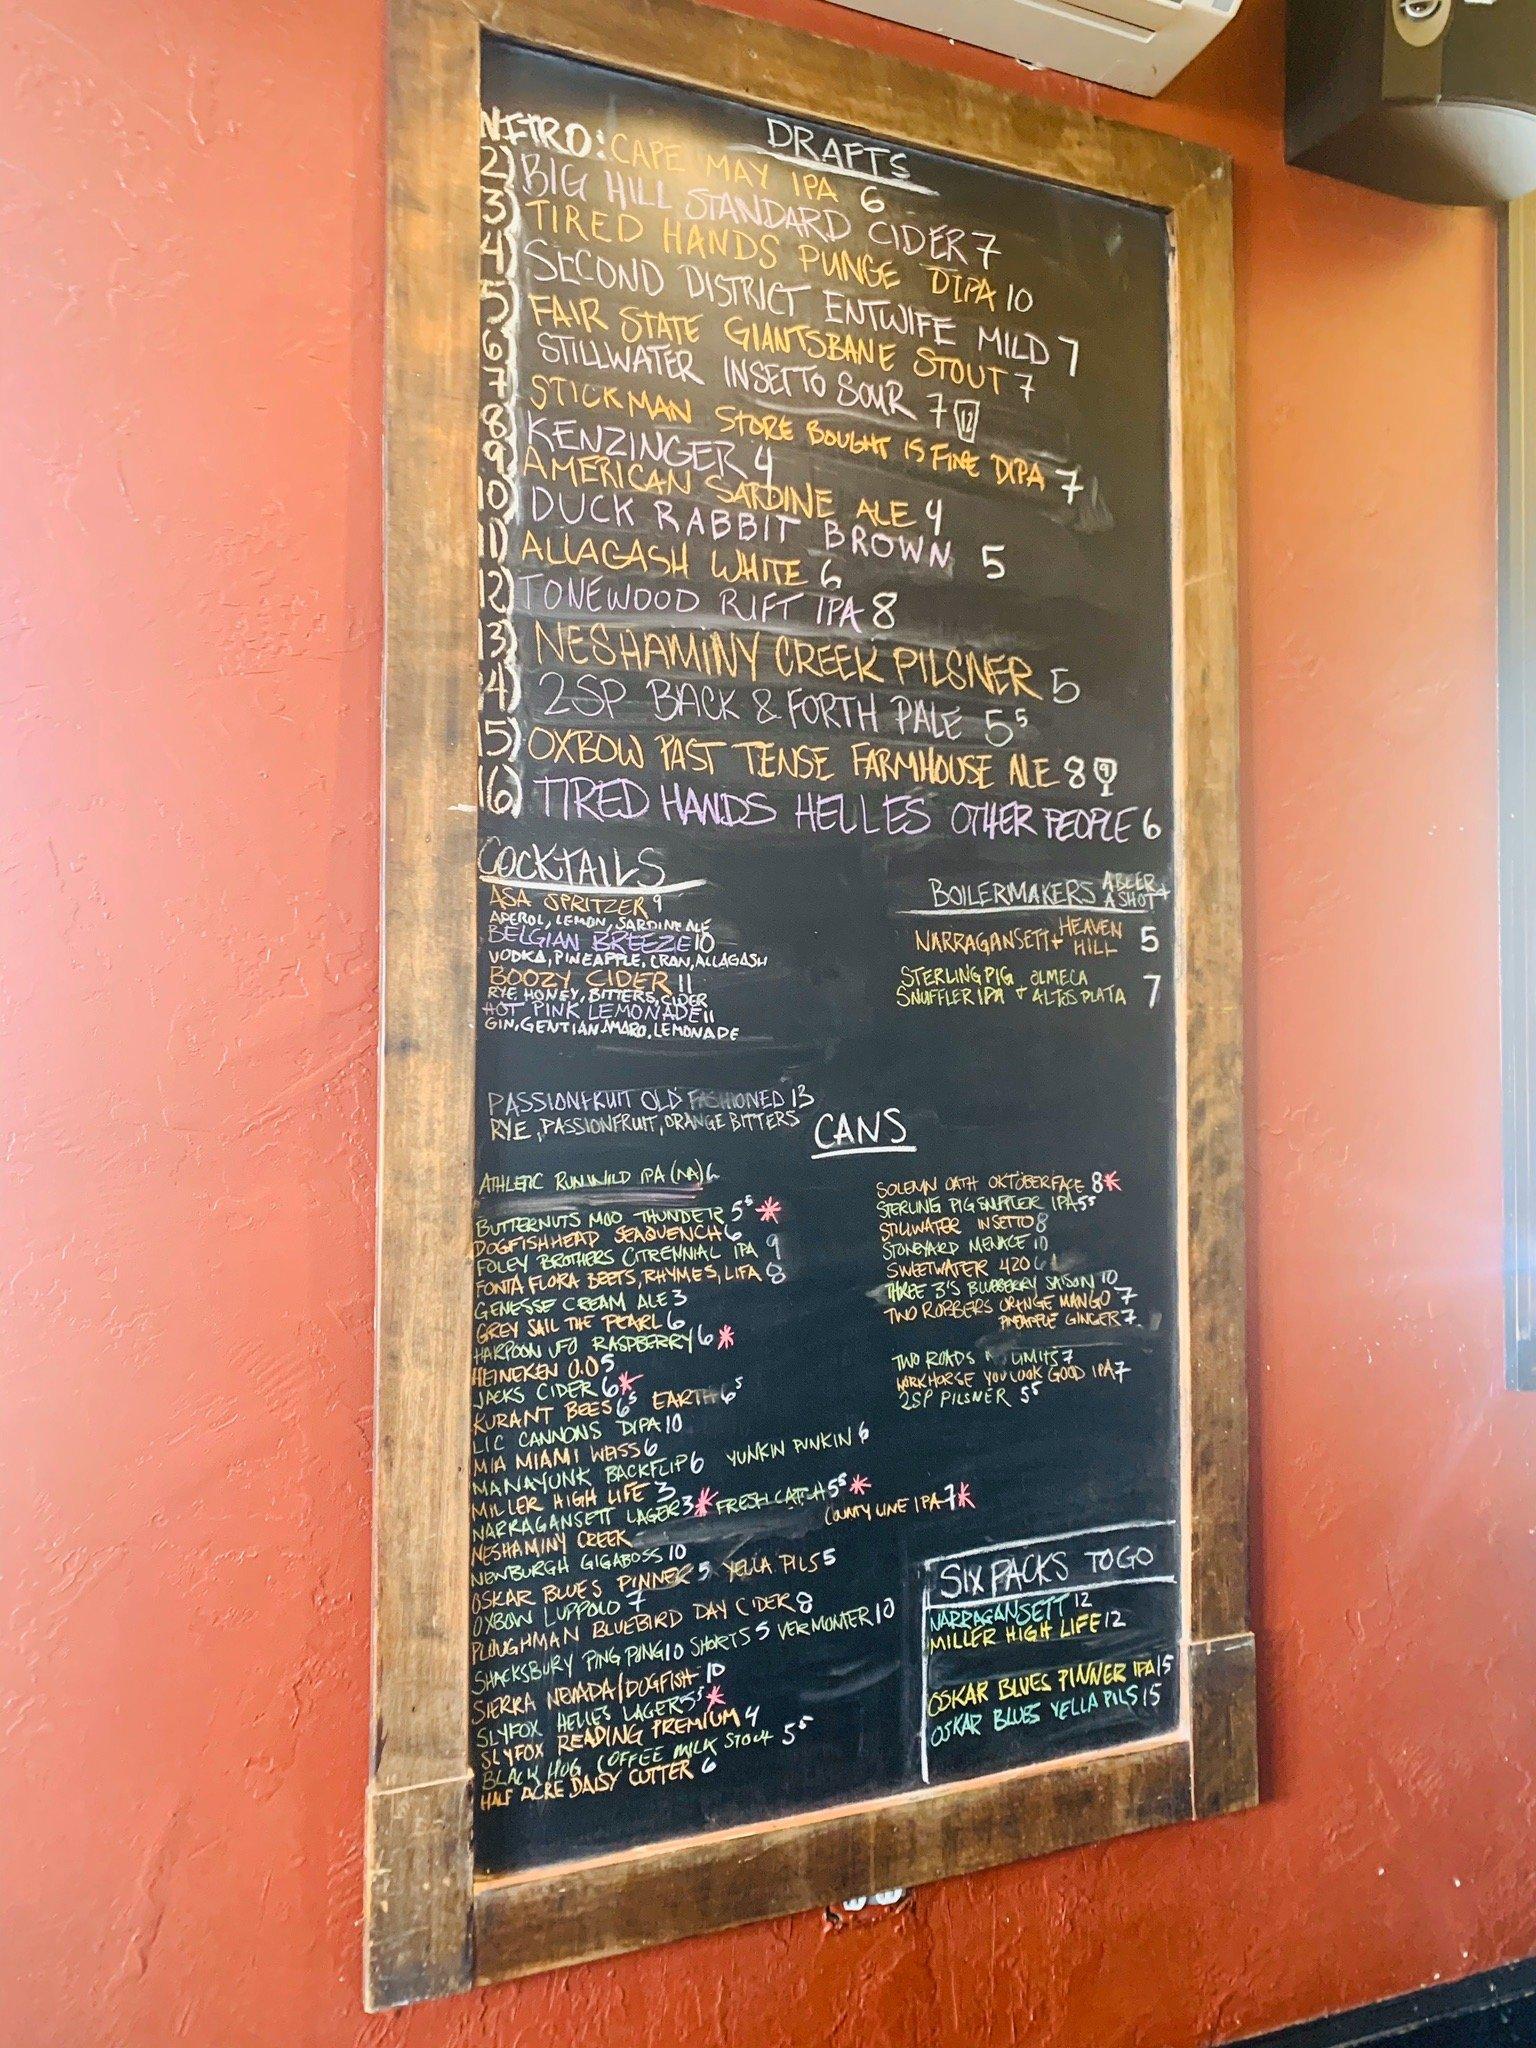 DRAFTS
NITRO: CAPE MAY IPA 6
2) BIG HILL STANDARD CIDER 7
3) TIRED HANDS PUNGE DIPA 10
4) SECOND DISTRICT ENTWIFE MILD 7
5) FAIR STATE GIANTSBANE STOUT 7
6) STILLWATER INSETTO SOUR 7 12
7) STICKMAN STORE BOUGHT IS FINE DIPA 7
8) KENZINGER 4
9) AMERICAN SARDINE ALE 4
10) DUCK RABBIT BROWN 5
11) ALLAGASH WHITE 6
12) TONEWOOD RIFT IPA 8
13) NESHAMINY CREEK PILSNER 5
14) 2SP BACK & FORTH PALE 5⁵
15) OXBOW PAST TENSE FARMHOUSE ALE 8 9
16) TIRED HANDS HELLES OTHER PEOPLE 6
COCKTAILS
ASA SPRITZER 9
APEROL, LEMON, SARDINE ALE
BELGIAN BREEZE 10
VODKA, PINEAPPLE, CRAN, ALLAGASH
BOOZY CIDER 11
RYE, HONEY, BITTERS, CIDER
HOT PINK LEMONADE 11
GIN, GENTIAN AMARO, LEMONADE
PASSIONFRUIT OLD FASHIONED 13
RYE, PASSIONFRUIT, ORANGE BITTERS
BOILERMAKERS A BEER + A SHOT
NARRAGANSETT + HEAVEN HILL 5
STERLING PIG SNUFFLER IPA + OLMECA ALTOS PLATA 7
CANS
ATHLETIC RUN WILD IPA (NA) 6
BUTTERNUTS MOO THUNDER 5⁵ *
DOGFISHHEAD SEAQUENCH 6
FOLEY BROTHERS CITRENNIAL IPA 9
FONTA FLORA BEETS, RHYMES, LIFA 8
GENESSE CREAM ALE 3
GREY SAIL THE PEARL 6
HARPOON UFO RASPBERRY 6 *
HEINEKEN 0.0 5
JACKS CIDER 6 *
KURANT BEES 6⁵ EARTH 6⁵
LIC CANNONS DIPA 10
MIA MIAMI WEISS 6
MANAYUNK BACKFLIP 6 YUNKIN PUNKIN 6
MILLER HIGH LIFE 3
NARRAGANSETT LAGER 3 * FRESH CATCH 5⁵ *
NESHAMINY CREEK COUNTY LINE IPA 7 *
NEWBURGH GIGABOSS 10
OSKAR BLUES PINNER 5 YELLA PILS 5
OXBOW LUPPOLO 7
PLOUGHMAN BLUEBIRD DAY CIDER 8
SHACKSBURY PING PONG 10 SHORTS 5 VERMONTER 10
SIERRA NEVADA/DOGFISH 10
SLYFOX HELLES LAGER 5⁵ *
SLYFOX READING PREMIUM 4
BLACK HOG COFFEE MILK STOUT 5⁵
HALF ACRE DAISY CUTTER 6
SOLEMN OATH OKTOBERFACE 8 *
STERLING PIG SNUFFLER IPA 5⁵
STILLWATER INSETTO 8
STONEYARD MENACE 10
SWEETWATER 420 6
THREE 3'S BLUEBERRY SAISON 10
TWO ROBBERS ORANGE MANGO 7
PINEAPPLE GINGER 7
TWO ROADS LIMITS 7
WORKHORSE YOU LOOK GOOD IPA 7
2SP PILSNER 5⁵
SIX PACKS TO GO
NARRAGANSETT 12
MILLER HIGH LIFE 12
OSKAR BLUES PINNER IPA 15
OSKAR BLUES YELLA PILS 15